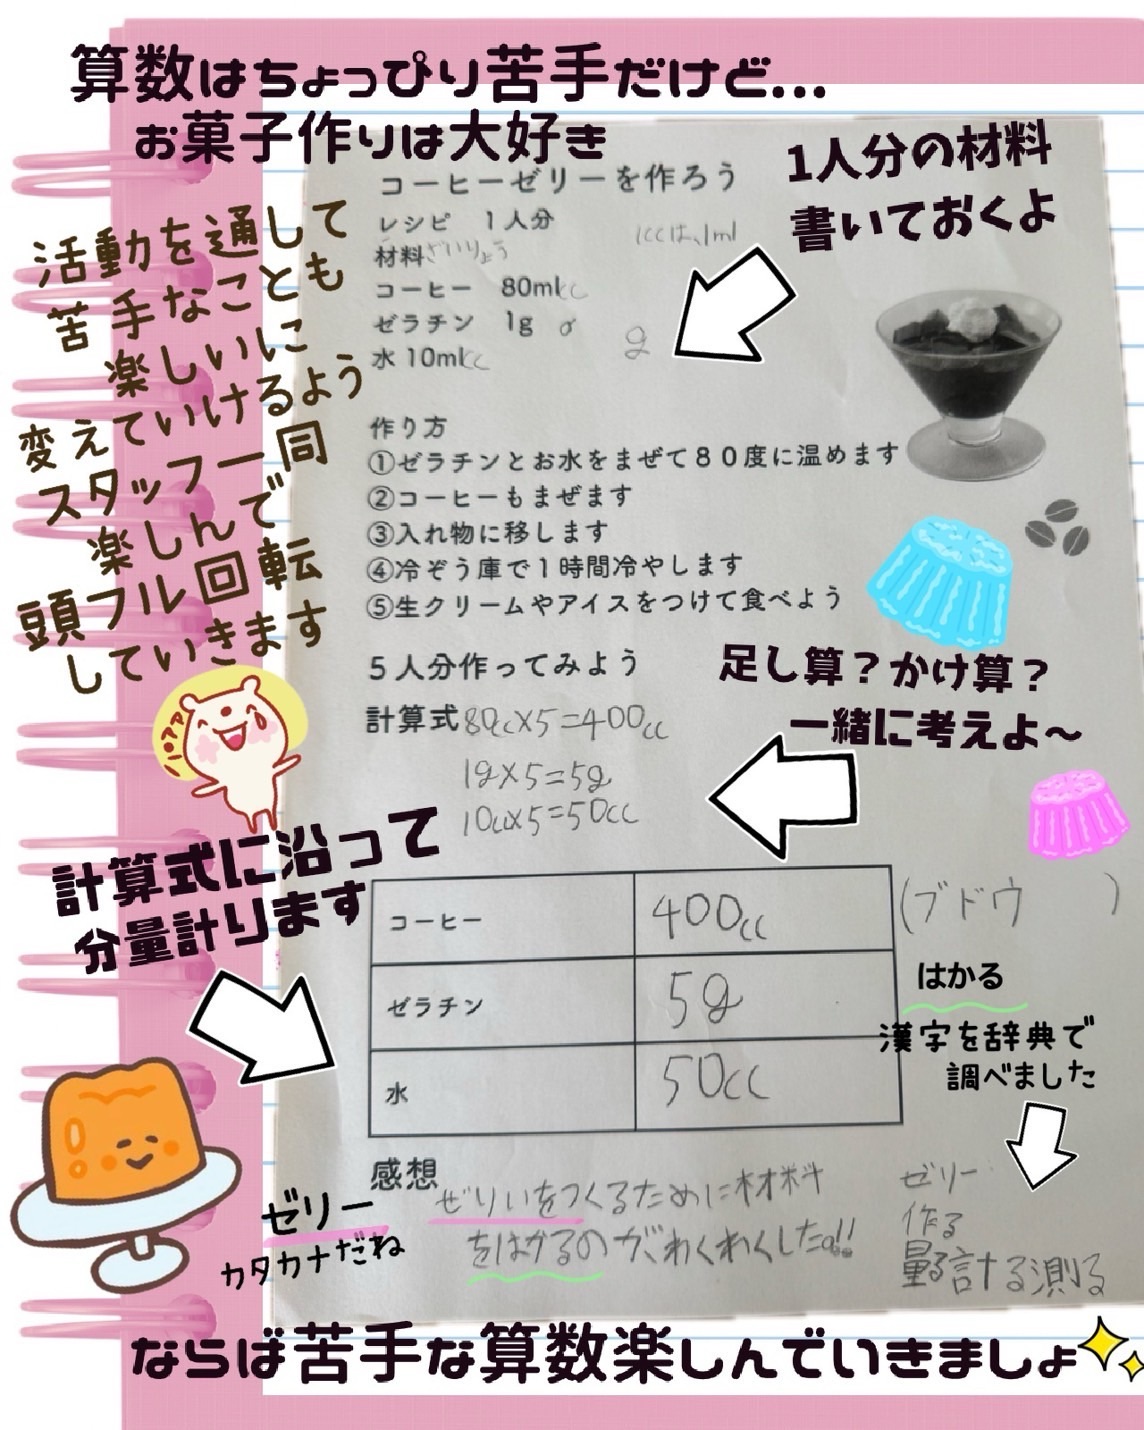 算数はちょっぴり苦手だけど...
お菓子作りは大好き
1人分の材料
書いておくよ
活動を通して
苦手なことも
楽しいに
変えていけるよう
スタッフ一同
楽しんで
頭フル回転
していきます
コーヒーゼリーを作ろう
レシピ 1人分
1ccは、1ml
材料ざいりょう
コーヒー 80mlcc
ゼラチン 1g g
g
水 10mlcc
作り方
①ゼラチンとお水をまぜて80度に温めます
②コーヒーもまぜます
③入れ物に移します
④冷ぞう庫で1時間冷やします
⑤生クリームやアイスをつけて食べよう
5人分作ってみよう
足し算?かけ算?
一緒に考えよ~
計算式80cc×5=400cc
1g×5=5g
10cc×5=50cc
計算式に沿って
分量計ります
コーヒー 400cc (ブドウ )
ゼラチン 5g
水 50cc
はかる
漢字を辞典で
調べました
感想
ぜりいをつくるために材料
をはかるのがわくわくしたa!!
ゼリー
カタカナだね
ゼリー
作る
量る計する測る
ならば苦手な算数楽しんでいきましょ